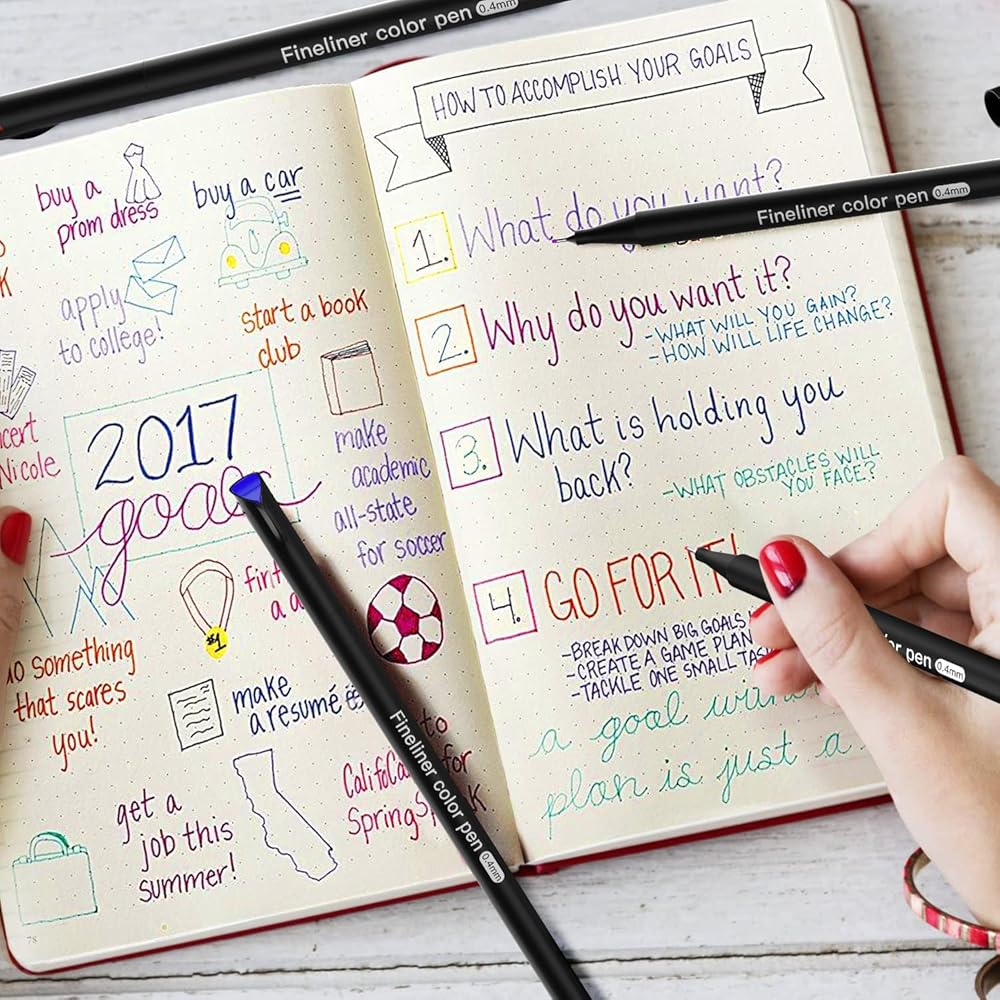 Fineliner color pen 0.4mm
buy a
prom dress
buy a car
apply
to college!
start a book
club
Nicole
2017
goals
make
academic
all-state
for soccer
#1
something
that scares
you!
make
a resumé
get a
job this
summer!
to
for
Spring
78
HOW TO ACCOMPLISH YOUR GOALS
1. What do you want?
Fineliner color pen 0.4mm
2. Why do you want it?
-WHAT WILL YOU GAIN?
-HOW WILL LIFE CHANGE?
3. What is holding you
back?
-WHAT OBSTACLES WILL
YOU FACE?
4. GO FOR IT!
-BREAK DOWN BIG GOALS
-CREATE A GAME PLAN
-TACKLE ONE SMALL
a goal
plan is just a
pen 0.4mm
Fineliner color pen 0.4mm